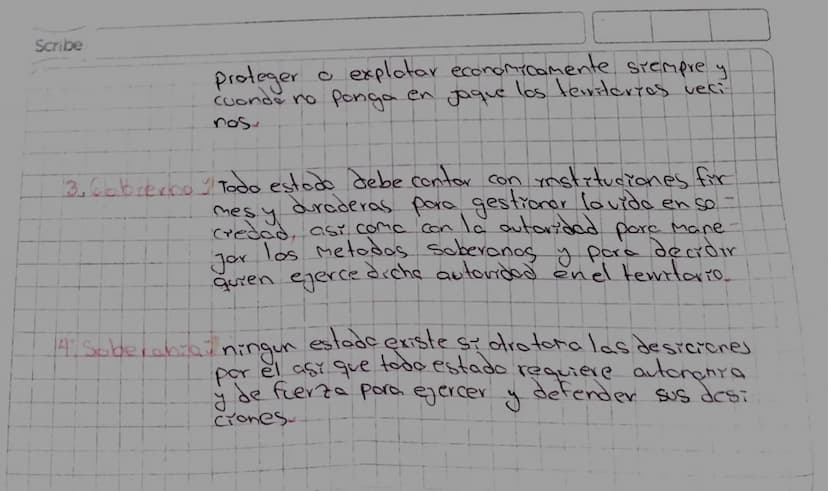 Scribe
proteger o explotar economicamente siempre y
cuando no ponga en jaque los territorios veci
nos.
3. Gobierno: Todo estado debe contar con instituciones fir
mes y duraderas para gestionar la vida en so-
ciedad, así como con la autoridad para mane-
jar los metodos soberanos y para decidir
quien ejerce dicha autoridad en el territorio.
4. Soberania: ningun estado existe si otro toma las desiciones
por él asi que todo estado requiere autonomia
y de fuerza para ejercer y defender sus desi
ciones.